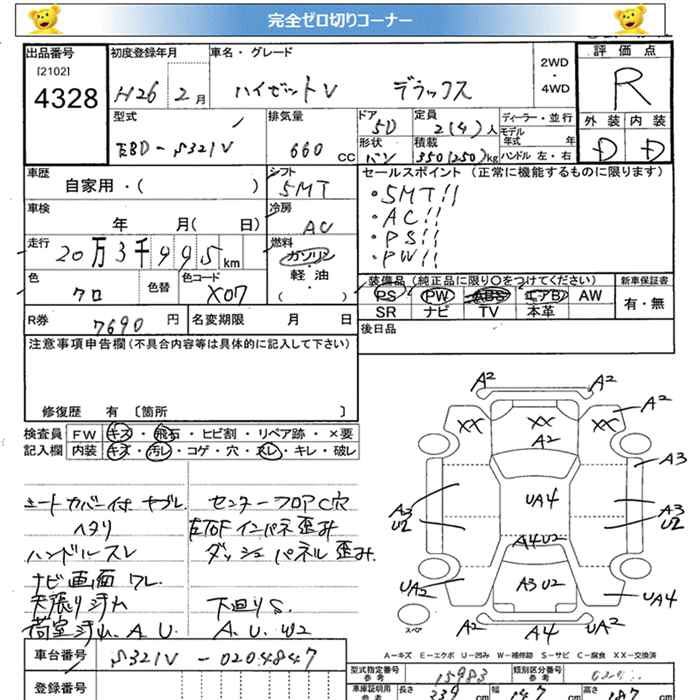 完全ゼロ切りコーナー
出品番号 初度登録年月 車名・グレード 2WD・4WD 評価点
[2102]
4328 H26 2月 ハイゼットV デラックス R
型式 排気量 ドア 定員 ディーラー・並行 外装 内装
EBD-S321V 660 CC 5D 2(4)人 モデル年式 年 D D
形状 バン 積載 350(250)kg ハンドル 左・右
車歴 自家用・( ) シフト 5MT セールスポイント (正常に機能するものに限ります)
・5MT!!
車検 年 月( 日) 冷房 AC ・AC!!
走行 20万3千995km 燃料 ガソリン・軽・油( ) ・PS!!
・PW!!
色 クロ 色替 色コード X07
装備品 (純正品に限り○をつけてください) 新車保証書
PS PW ABS エアB AW 有・無
SR ナビ TV 本革
R券 7690円 名変期限 月 日 後日品
注意事項申告欄(不具合内容等は具体的に記入して下さい)
修復歴 有 〔箇所 〕
検査員 FW キズ・飛石・ヒビ割・リペア跡・×要
記入欄 内装 キズ・汚レ・コゲ・穴・スレ・キレ・破レ
シートカバー付 ヤブレ センターフロアC穴
ヘタリ 左右Fインパネ歪み
ハンドルスレ ダッシュパネル歪み.
ナビ画面ワレ.
天張り汚れ 下廻りS.
荷室汚れ.A.U. A.U.W2
A2 A2
XX A2 XX A2
A3
A3 U2 UA4 A3 U2
A4 U2
UA2 A3 U2 UA4
スペア A2 A4 UA2
A-キズ E-エクボ U-凹み W-補修跡 S-サビ C-腐食 XX-交換済
車台番号 S321V-0204847
型式指定番号 参考 15983 類別区分番号 参考
登録番号 車庫証明用 参考 長さ 339 cm 幅 147 cm 高さ 187 cm